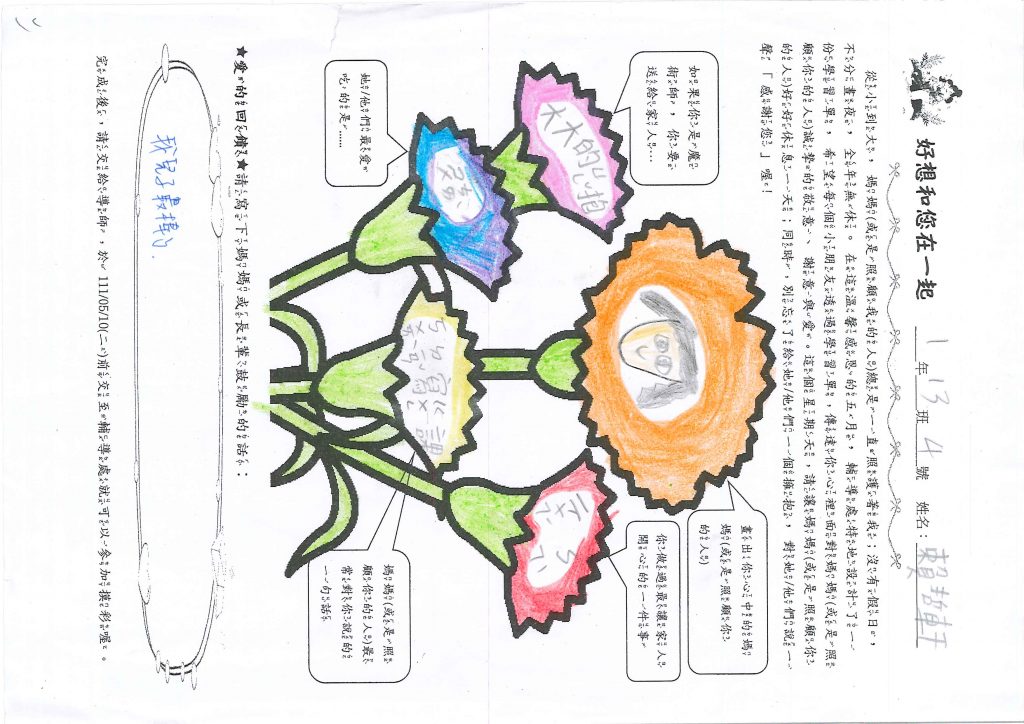 好想和您在一起
1年13班4號 姓名：賴哲軒
從小到大，媽媽(或是照顧我的人)總是一直照護著我；沒有假日，
不分晝夜，全年無休。在這溫馨感恩的五月，輔導處特地設計了一
份學習單，希望每個小朋友透過學習單，傳達你心裡面對媽媽(或是照
顧你的人)誠摯的敬意、謝意與愛。這個星期天，請讓媽媽(或是照顧你
的人)好好休息一天，同時，別忘了給她/他們一個擁抱，對她/他們說一
聲「感謝您」喔！
如果你是魔
術師，你要
送給家人…
大大的抱
畫出你心中的媽
媽(或是照顧你
的人)
她/他們最愛
吃的是……
你做過最讓家人
開心的一件事
媽媽(或是照
顧你的人)最
常對你說的
一句話
★愛的回饋★請寫下媽媽或長輩鼓勵的話：
我兒子最棒
完成後，請交給導師，於111/05/10(二)前交至輔導處就可以參加摸彩喔。